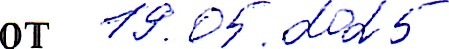 от 19.05.2025